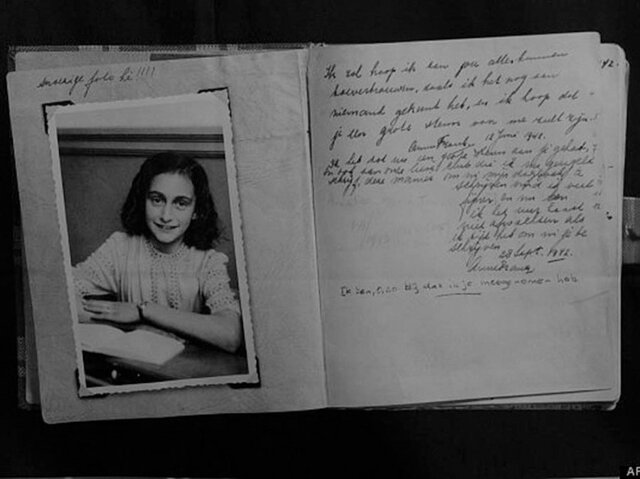 snoezige foto hè!!!!
Ik zal hoop ik aan jou alles kunnen
toevertrouwen, zoals ik het nog aan
niemand gekund heb, en ik hoop dat
je een grote steun voor me zult zijn.
Anne Frank. 12 Juni 1942.
42.
Ik heb tot nu toe een grote steun aan je gehad,
en ook aan onze lieve club die ik nu geregeld
schrijf, deze manier om in mijn dagboek te
schrijven vind ik veel
fijner en nu kan
ik het uur haast
niet afwachten als
ik tijd heb om in je te
schrijven.
28 Sept. 1942.
Anne Frank.
Ik ben, O, zo blij dat ik je meegenomen heb
AP